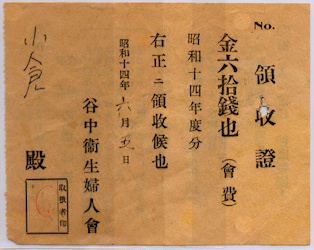 No.
領收證
金六拾錢也(會費)
昭和十四年度分
右正ニ領收候也
昭和十四年六月五日
谷中衞生婦人會
小倉
殿
取扱者印